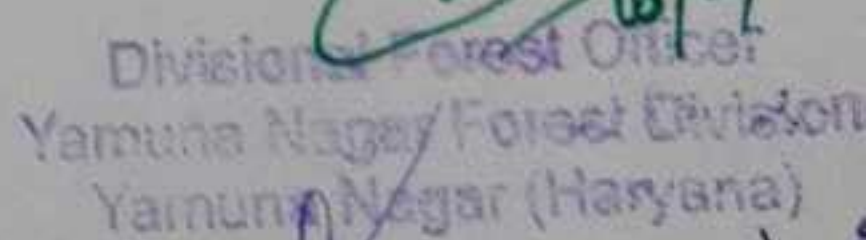 Divisional Forest Officer
Yamuna Nagar Forest Division
Yamuna Nagar (Haryana)